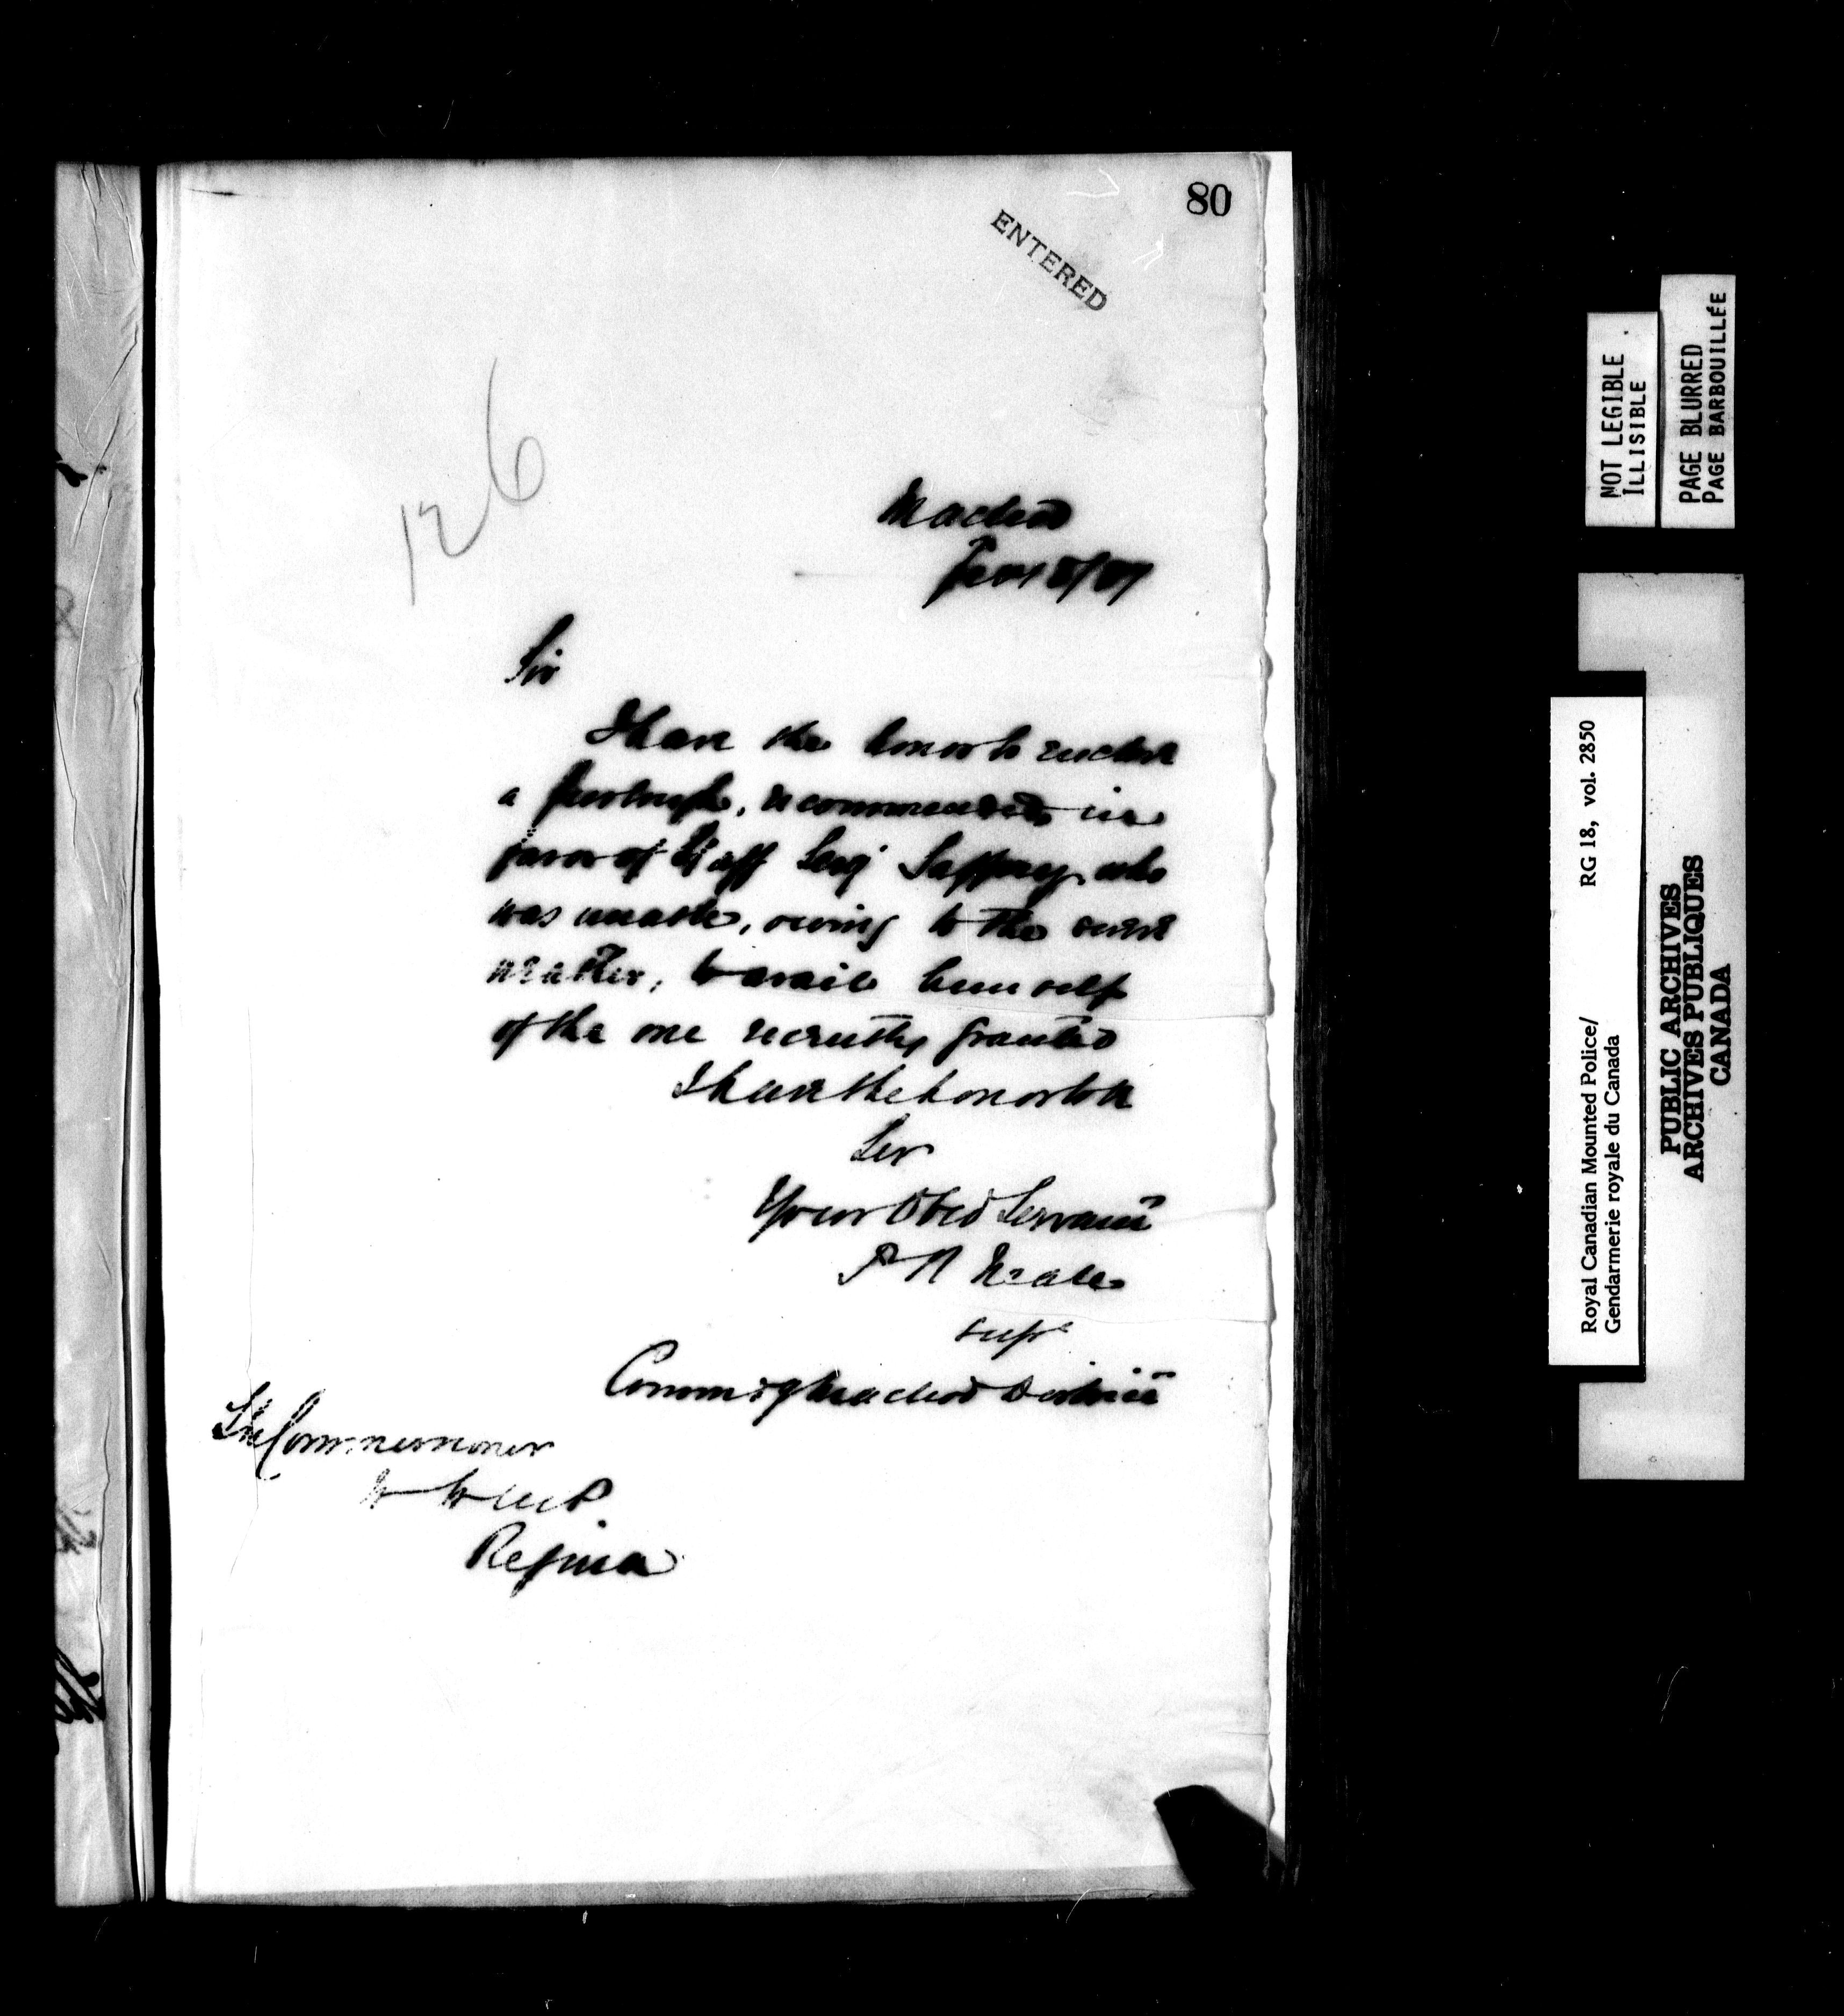 80
ENTERED
126
Macleod
Sir
I have the honor to enclose
a furlough, recommended in
favor of Staff Sergt who
was unable, owing to the severe
weather, to avail himself
of the one recently granted
I have the honor to be
Sir
Your Obed Servant
P R Neale
Supt
Commdg Macleod District
The Commissioner
N W M P
Regina
NOT LEGIBLE
ILLISIBLE
PAGE BLURRED
PAGE BARBOUILLÉE
Royal Canadian Mounted Police/ RG 18, vol. 2850
Gendarmerie royale du Canada
PUBLIC ARCHIVES
ARCHIVES PUBLIQUES
CANADA